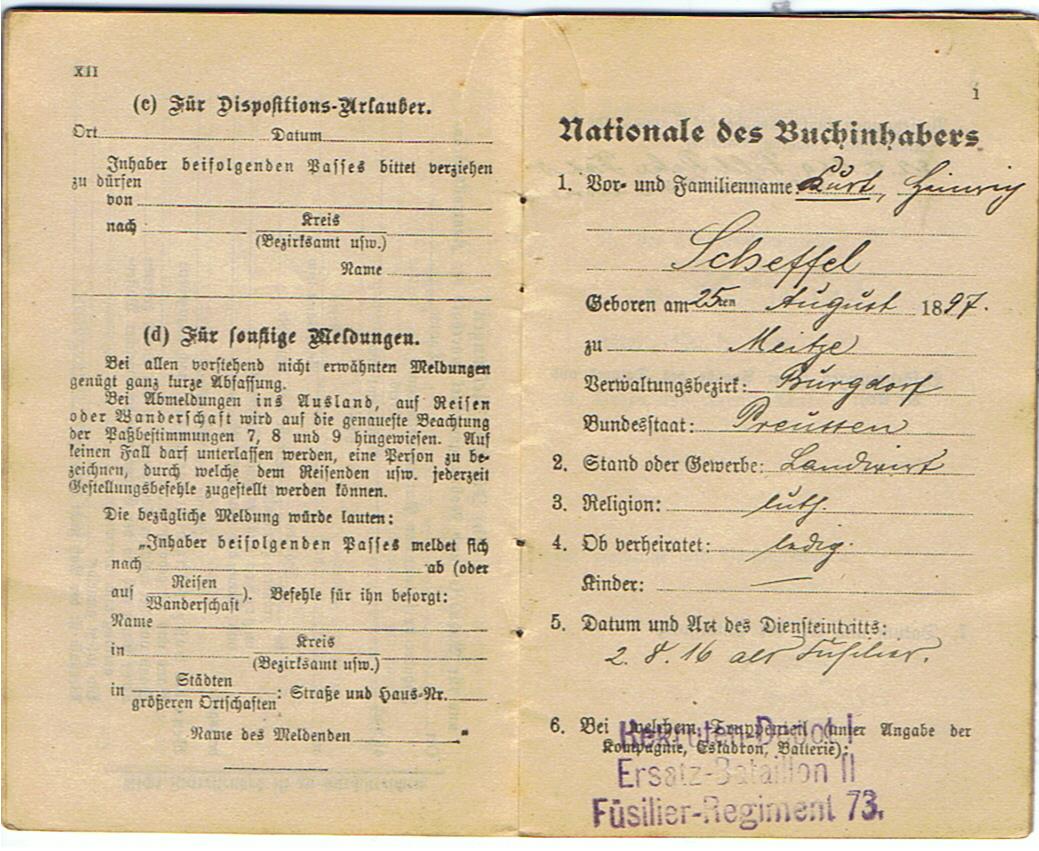 XII
(c) Für Dispositions-Urlauber.
Ort Datum
Inhaber beifolgenden Passes bittet verziehen
zu dürfen
von
nach Kreis
(Bezirksamt usw.)
Name
(d) Für sonstige Meldungen.
Bei allen vorstehend nicht erwähnten Meldungen
genügt ganz kurze Abfassung.
Bei Abmeldungen ins Ausland, auf Reisen
oder Wanderschaft wird auf die genaueste Beachtung
der Paßbestimmungen 7, 8 und 9 hingewiesen. Auf
keinen Fall darf unterlassen werden, eine Person zu be-
zeichnen, durch welche dem Reisenden usw. jederzeit
Gestellungsbefehle zugestellt werden können.
Die bezügliche Meldung würde lauten:
„Inhaber beifolgenden Passes meldet sich
nach ab (oder
auf Reisen
Wanderschaft). Befehle für ihn besorgt:
Name
in Kreis
(Bezirksamt usw.)
in Städten
größeren Ortschaften: Straße und Haus-Nr.
Name des Meldenden "
1
Nationale des Buchinhabers
1. Vor- und Familienname: Kurt, Heinrich
Scheffel
Geboren am 25ten August 1897.
zu Meitze
Verwaltungsbezirk: Burgdorf
Bundesstaat: Preussen
2. Stand oder Gewerbe: Landwirt
3. Religion: luth.
4. Ob verheiratet: ledig.
Kinder: —
5. Datum und Art des Diensteintritts:
2. 8. 16 als Füsilier.
6. Bei welchem Truppenteil (unter Angabe der
Kompagnie, Eskadron, Batterie):
Rekruten-Depot I
Ersatz-Bataillon II
Füsilier-Regiment 73.